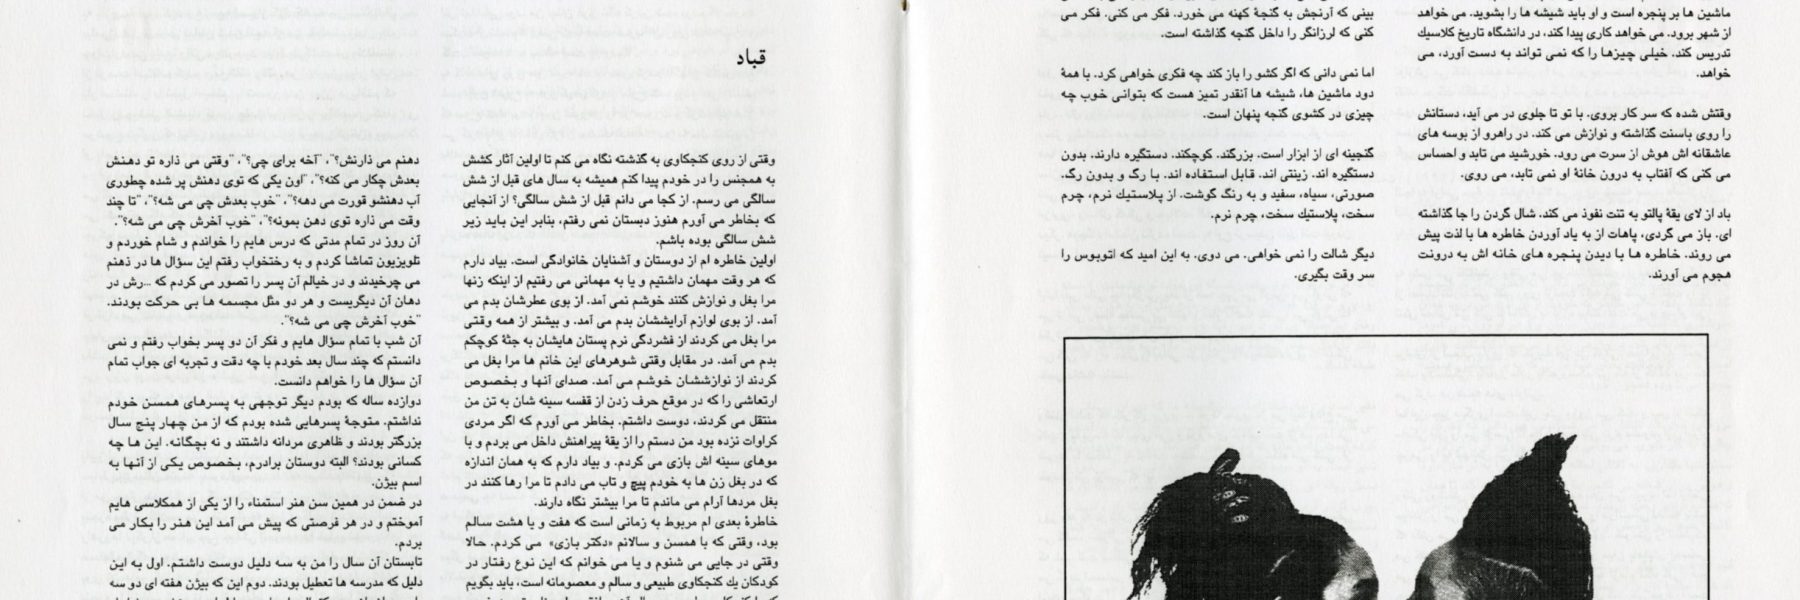 ماشین ها بر پنجره است و او باید شیشه ها را بشوید. می خواهد
از شهر برود. می خواهد کاری پیدا کند، در دانشگاه تاریخ کلاسیك
تدریس کند. خیلی چیزها را که نمی تواند به دست آورد، می
خواهد.
وقتش شده که سر کار بروی. با تو تا جلوی در می آید، دستانش
را روی باسنت گذاشته و نوازش می کند. در راهرو از بوسه های
عاشقانه اش هوش از سرت می رود. خورشید می تابد و احساس
می کنی که آفتاب به درون خانهٔ او نمی تابد، می روی.
باد از لای یقهٔ پالتو به تنت نفوذ می کند. شال گردن را جا گذاشته
ای. باز می گردی، پاهات از به یاد آوردن خاطره ها با لذت پیش
می روند. خاطره ها با دیدن پنجره های خانه اش به درونت
هجوم می آورند.
بینی که آرنجش به گنجهٔ کهنه می خورد. فکر می کنی. فکر می
کنی که لرزانگر را داخل گنجه گذاشته است.
اما نمی دانی که اگر کشو را باز کند چه فکری خواهی کرد. با همهٔ
دود ماشین ها، شیشه ها آنقدر تمیز هست که بتوانی خوب چه
چیزی در کشوی گنجه پنهان است.
گنجینه ای از ابزار است. بزرگند. کوچکند. دستگیره دارند. بدون
دستگیره اند. زینتی اند. قابل استفاده اند. با رگ و بدون رگ.
صورتی، سیاه، سفید و به رنگ گوشت. از پلاستیك نرم، چرم
سخت، پلاستیك سخت، چرم نرم.
دیگر شالت را نمی خواهی. می دوی. به این امید که اتوبوس را
سر وقت بگیری.
قباد
وقتی از روی کنجکاوی به گذشته نگاه می کنم تا اولین آثار کشش
به همجنس را در خودم پیدا کنم همیشه به سال های قبل از شش
سالگی می رسم. از کجا می دانم قبل از شش سالگی؟ از آنجایی
که بخاطر می آورم هنوز دبستان نمی رفتم، بنابر این باید زیر
شش سالگی بوده باشم.
اولین خاطره ام از دوستان و آشنایان خانوادگی است. بیاد دارم
که هر وقت مهمان داشتیم و یا به مهمانی می رفتیم از اینکه زنها
مرا بغل و نوازش کنند خوشم نمی آمد. از بوی عطرشان بدم می
آمد. از بوی لوازم آرایششان بدم می آمد. و بیشتر از همه وقتی
مرا بغل می کردند از فشردگی نرم پستان هایشان به جثهٔ کوچکم
بدم می آمد. در مقابل وقتی شوهرهای این خانم ها مرا بغل می
کردند از نوازششان خوشم می آمد. صدای آنها و بخصوص
ارتعاشی را که در موقع حرف زدن از قفسه سینه شان به تن من
منتقل می کردند، دوست داشتم. بخاطر می آورم که اگر مردی
کراوات نزده بود من دستم را از یقهٔ پیراهنش داخل می بردم و با
موهای سینه اش بازی می کردم. و بیاد دارم که به همان اندازه
که در بغل زن ها به خودم پیچ و تاب می دادم تا مرا رها کنند در
بغل مردها آرام می ماندم تا مرا بیشتر نگاه دارند.
خاطرهٔ بعدی ام مربوط به زمانی است که هفت و یا هشت سالم
بود، وقتی که با همسن و سالانم «دکتر بازی» می کردم. حالا
وقتی در جایی می شنوم و یا می خوانم که این نوع رفتار در
کودکان یك کنجکاوی طبیعی و سالم و معصومانه است، باید بگویم
دهنم می ذارنش؟"، "آخه برای چی؟"، "وقتی می ذاره تو دهنش
بعدش چکار می کنه؟"، "اون یکی که توی دهنش پر شده چطوری
آب دهنشو قورت می دهه؟"، "خوب بعدش چی می شه؟"، "تا چند
وقت می ذاره توی دهن بمونه؟"، "خوب آخرش چی می شه؟".
آن روز در تمام مدتی که درس هایم را خواندم و شام خوردم و
تلویزیون تماشا کردم و به رختخواب رفتم این سؤال ها در ذهنم
می چرخیدند و در خیالم آن پسر را تصور می کردم که ...رش در
دهان آن دیگریست و هر دو مثل مجسمه ها بی حرکت بودند.
"خوب آخرش چی می شه؟".
آن شب با تمام سؤال هایم و فکر آن دو پسر بخواب رفتم و نمی
دانستم که چند سال بعد خودم با چه دقت و تجربه ای جواب تمام
آن سؤال ها را خواهم دانست.
دوازده ساله که بودم دیگر توجهی به پسرهای همسن خودم
نداشتم. متوجهٔ پسرهایی شده بودم که از من چهار پنج سال
بزرگتر بودند و ظاهری مردانه داشتند و نه بچگانه. این ها چه
کسانی بودند؟ البته دوستان برادرم، بخصوص یکی از آنها به
اسم بیژن.
در ضمن در همین سن هنر استمناء را از یکی از همکلاسی هایم
آموختم و در هر فرصتی که پیش می آمد این هنر را بکار می
بردم.
تابستان آن سال را من به سه دلیل دوست داشتم. اول به این
دلیل که مدرسه ها تعطیل بودند. دوم این که بیژن هفته ای دو سه